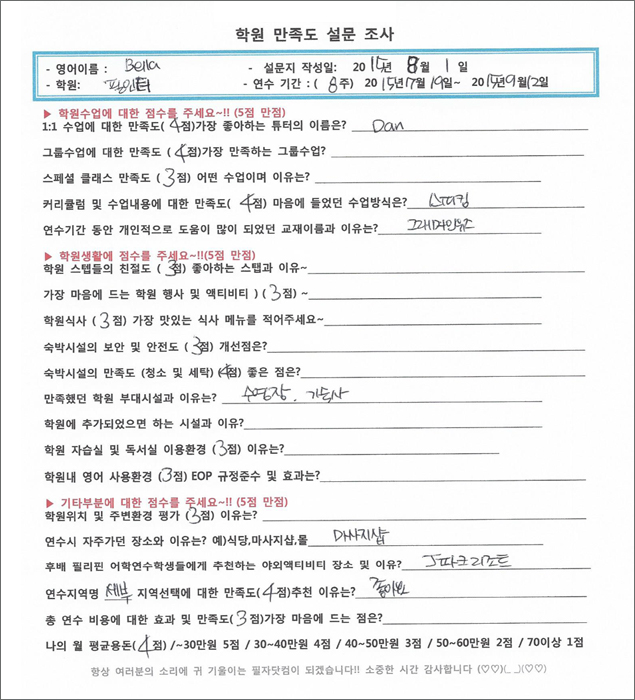 학원 만족도 설문 조사
- 영어이름 : Bella - 설문지 작성일: 2015년 8월 1일
- 학원: - 연수 기간 : ( 8주) 2015년7월19일~ 2015년9월12일
▶ 학원수업에 대한 점수를 주세요~!! (5점 만점)
1:1 수업에 대한 만족도( 4점)가장 좋아하는 튜터의 이름은? Dan
그룹수업에 대한 만족도 ( 4점)가장 만족하는 그룹수업?
스페셜 클래스 만족도 ( 3점) 어떤 수업이며 이유는?
커리큘럼 및 수업내용에 대한 만족도( 4점) 마음에 들었던 수업방식은? 스피킹
연수기간 동안 개인적으로 도움이 많이 되었던 교재이름과 이유는? 그래머인유즈
▶ 학원생활에 점수를 주세요~!!(5점 만점)
학원 스텝들의 친절도 ( 3점) 좋아하는 스탭과 이유~
가장 마음에 드는 학원 행사 및 액티비티 ) ( 3점) ~
학원식사 ( 3점) 가장 맛있는 식사 메뉴를 적어주세요~
숙박시설의 보안 및 안전도 ( 3점) 개선점은?
숙박시설의 만족도 (청소 및 세탁) (4점) 좋은 점은?
만족했던 학원 부대시설과 이유는? 수영장, 기숙사
학원에 추가되었으면 하는 시설과 이유?
학원 자습실 및 독서실 이용환경 ( 3점) 이유는?
학원내 영어 사용환경 ( 3점) EOP 규정준수 및 효과는?
▶ 기타부분에 대한 점수를 주세요~!! (5점 만점)
학원위치 및 주변환경 평가 ( 3점) 이유는?
연수시 자주가던 장소와 이유는? 예)식당,마사지샵,몰 마사지샵
후배 필리핀 어학연수학생들에게 추천하는 야외액티비티 장소 및 이유? J파크리조트
연수지역명 세부 지역선택에 대한 만족도( 4점)추천 이유는?
총 연수 비용에 대한 효과 및 만족도( 3점)가장 마음에 드는 점은?
나의 월 평균용돈( 4점) /~30만원 5점 / 30~40만원 4점 / 40~50만원 3점 / 50~60만원 2점 / 70이상 1점
항상 여러분의 소리에 귀 기울이는 필자닷컴이 되겠습니다!! 소중한 시간 감사합니다 (♡♡)(_ _)(♡♡)